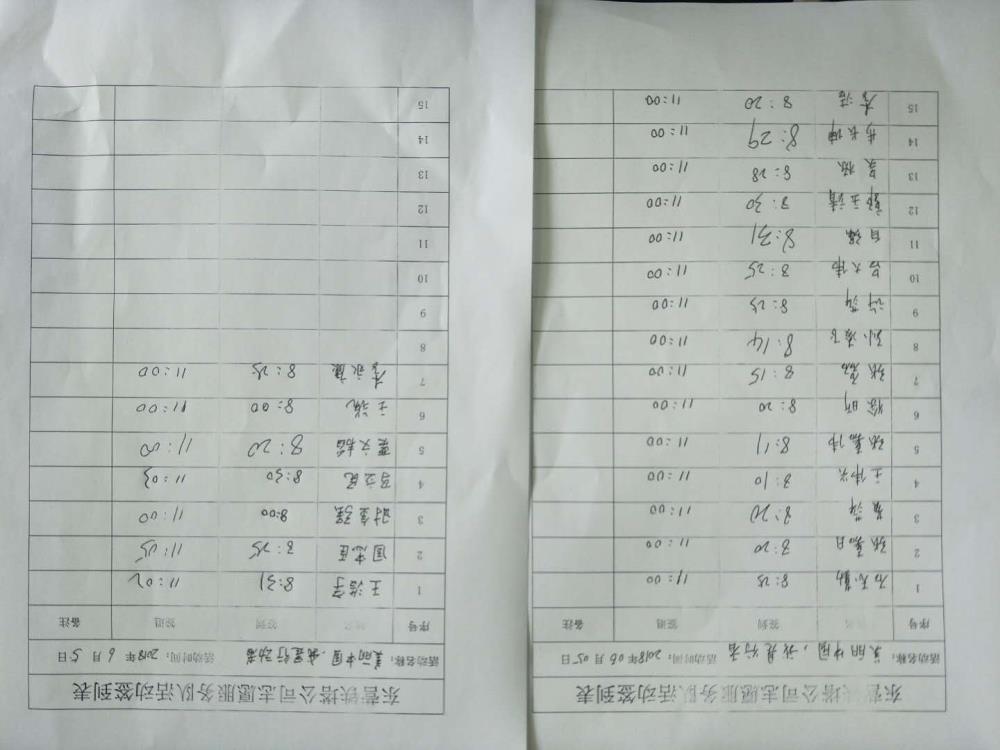 东营铁塔公司志愿服务队活动签到表
活动名称：美丽中国，我是行动者 活动时间：2018年6月5日
序号 姓名 签到 签退 备注
1 王浩宇 8:31 11:02
2 国志臣 8:25 11:05
3 8:00 11:00
4 8:30 11:03
5 8:20 11:00
6 8:00 11:00
7 李永健 8:25 11:00
8
9
10
11
12
13
14
15
东营铁塔公司志愿服务队活动签到表
活动名称：美丽中国，我是行者 活动时间：2018年06月05日
序号 姓名 签到 签退 备注
1 8:25 11:00
2 8:20 11:00
3 8:20 11:00
4 王伟 8:10 11:00
5 张嘉伟 8:11 11:00
6 徐明 8:20 11:00
7 张 8:15 11:00
8 孙 8:14 11:00
9 许萍 8:25 11:00
10 吕大伟 8:25 11:00
11 8:31 11:00
12 郭玉靖 8:30 11:00
13 吴 8:28 11:00
14 8:29 11:00
15 李浩 8:20 11:00